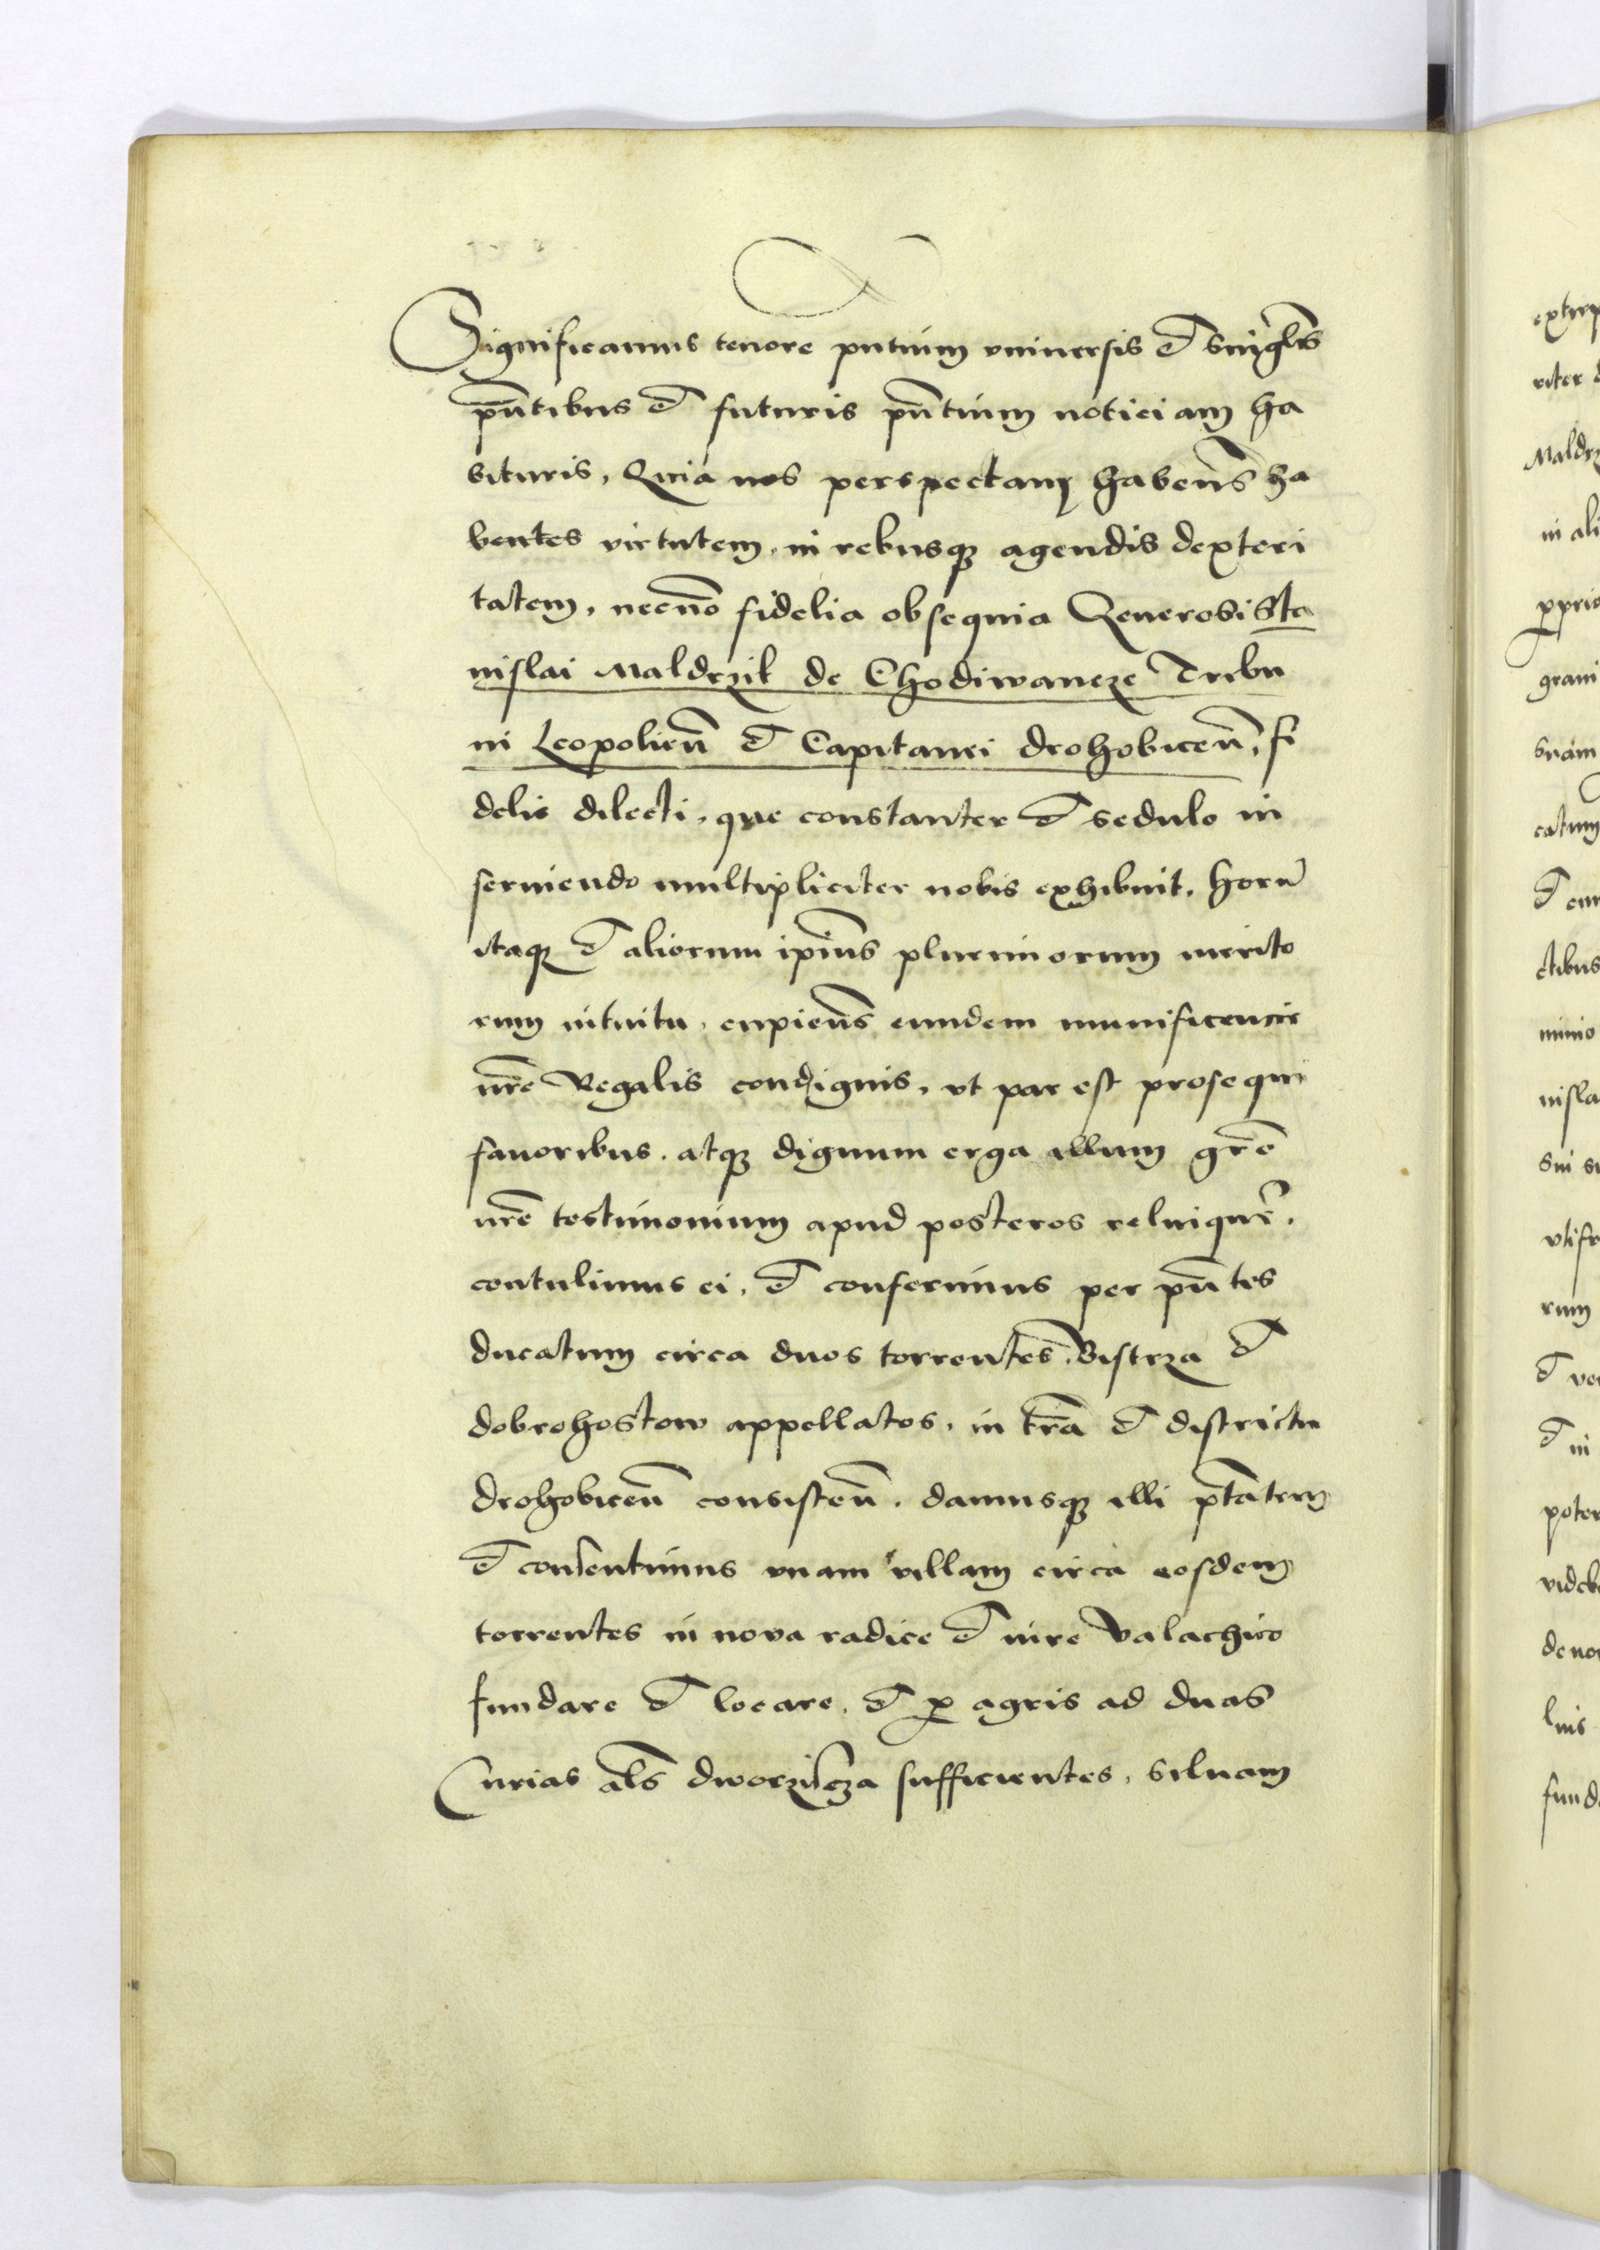 Significamus tenore pntium vniuersis et singulis
pntibus et futuris pntium noticiam ha
bituris, Quia nos perspectam habens ha
bentes virtutem, in rebusq agendis dexteri
tatem, necno fidelia obsequia Generosi Sta
nislai Maldrzik de Chodiwaneze Tribu
ni Leopolien et Capitanei drohobicen, fi
delis dilecti, que constanter et sedulo in
seruiendo multipliciter nobis exhibuit, horu
itaq et aliorum ipius plurimorum merito
rum intuitu, cupiens eundem munificencie
nre Regalis condignis, vt par est prosequi
fauoribus, atq dignum erga illum gre
nre testimonium apud posteros relinqure,
contulimus ei, et conferimus per pntes
ducatum circa duos torrentes, Bistrza et
dobrohostow appellatos, in tra et districtu
drohobicen consisten, damusq illi ptatem
et consentimus vnam villam circa eosdem
torrentes in nova radice et iure Valachico
fundare et locare, et p agris ad duas
Curias als dworzyscza sufficientes, siluam
extirp
riter
Maldrz
in ali
pprio
grani
suam
catum
et cum
ctibus
minio
nisla
sui su
vtifr
rum
et
et in
poter
videb
de nou
luis
funda